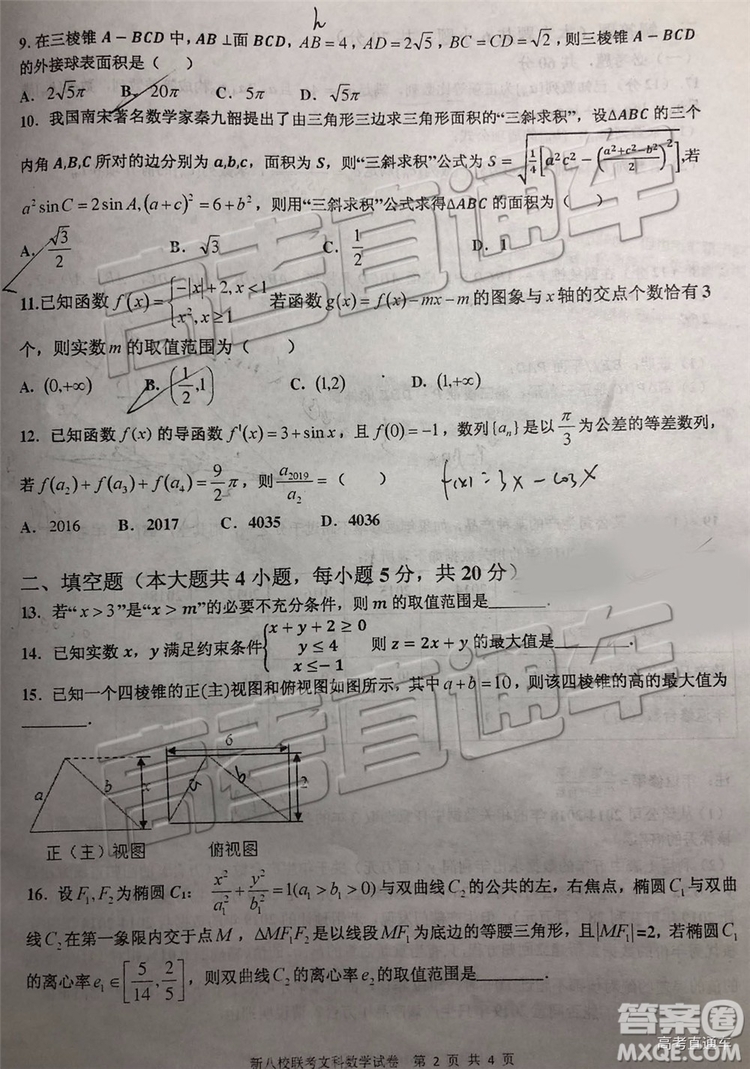 h
9.在三棱锥 A－BCD 中, AB⊥面 BCD, AB=4, AD=2√5, BC=CD=√2, 则三棱锥 A－BCD
的外接球表面积是（　）
A. 2√5π　B. 20π　C. 5π　D. √5π
10. 我国南宋著名数学家秦九韶提出了由三角形三边求三角形面积的“三斜求积”, 设ΔABC 的三个
内角 A,B,C 所对的边分别为 a,b,c, 面积为 S, 则“三斜求积”公式为 S=√(1/4[a²c²−((a²+c²−b²)/2)²]),若
a²sinC=2sinA,(a+c)²=6+b², 则用“三斜求积”公式求得ΔABC 的面积为（　）
A. √3/2　B. √3　C. 1/2　D. 1
11.已知函数 f(x)={−|x|+2,x<1 x²,x≥1 若函数 g(x)=f(x)−mx−m 的图象与 x 轴的交点个数恰有 3
个, 则实数 m 的取值范围为（　）
A. (0,+∞)　B. (1/2,1)　C. (1,2)　D. (1,+∞)
12. 已知函数 f(x) 的导函数 f'(x)=3+sinx, 且 f(0)=−1, 数列{aₙ}是以 π/3 为公差的等差数列,
若 f(a₂)+f(a₃)+f(a₄)=9/2π, 则 a₂₀₁₉/a₂=（　） f(x)=3x−cosx
A. 2016　B. 2017　C. 4035　D. 4036
二、填空题（本大题共 4 小题，每小题 5 分，共 20 分）
13. 若“x>3”是“x>m”的必要不充分条件，则 m 的取值范围是______.
14. 已知实数 x, y 满足约束条件{x+y+2≥0 y≤4 x≤−1 则 z=2x+y 的最大值是______.
15. 已知一个四棱锥的正(主)视图和俯视图如图所示, 其中 a+b=10, 则该四棱锥的高的最大值为
______.
6
a b x a b 2
正（主）视图　俯视图
16. 设 F₁,F₂ 为椭圆 C₁: x²/a₁²+y²/b₁²=1(a₁>b₁>0) 与双曲线 C₂ 的公共的左，右焦点，椭圆 C₁ 与双曲
线 C₂ 在第一象限内交于点 M, ΔMF₁F₂ 是以线段 MF₁ 为底边的等腰三角形，且|MF₁|=2, 若椭圆 C₁
的离心率 e₁∈[5/14,2/5], 则双曲线 C₂ 的离心率 e₂ 的取值范围是______.
新八校联考文科数学试卷　第 2 页 共 4 页
高考直通车
高考直通车
答案圈
MXQE.COM
高考直通车